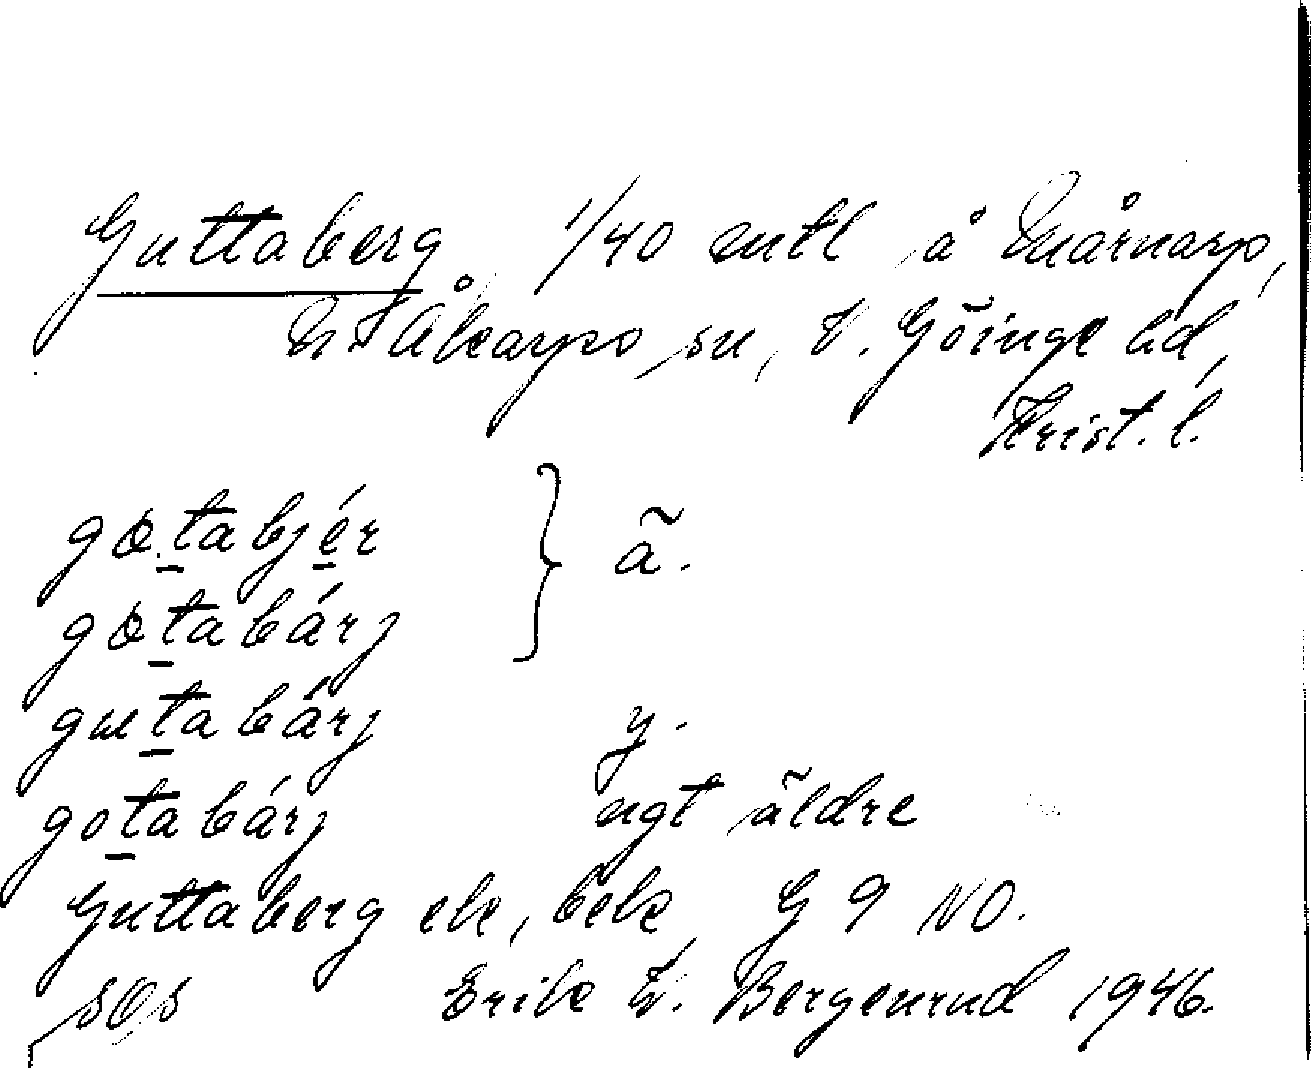 Guttaberg, 1/40 mtl å Mårnarp,
N. Åkarps sn, V. Göinge hd,
Krist. l.
gɵtabjér } ä.
gɵtabárj
gutabárj y.
gotabárj ngt äldre
Guttaberg ek, bek G 9 NO.
SOS Erik W. Bergenrud 1946.